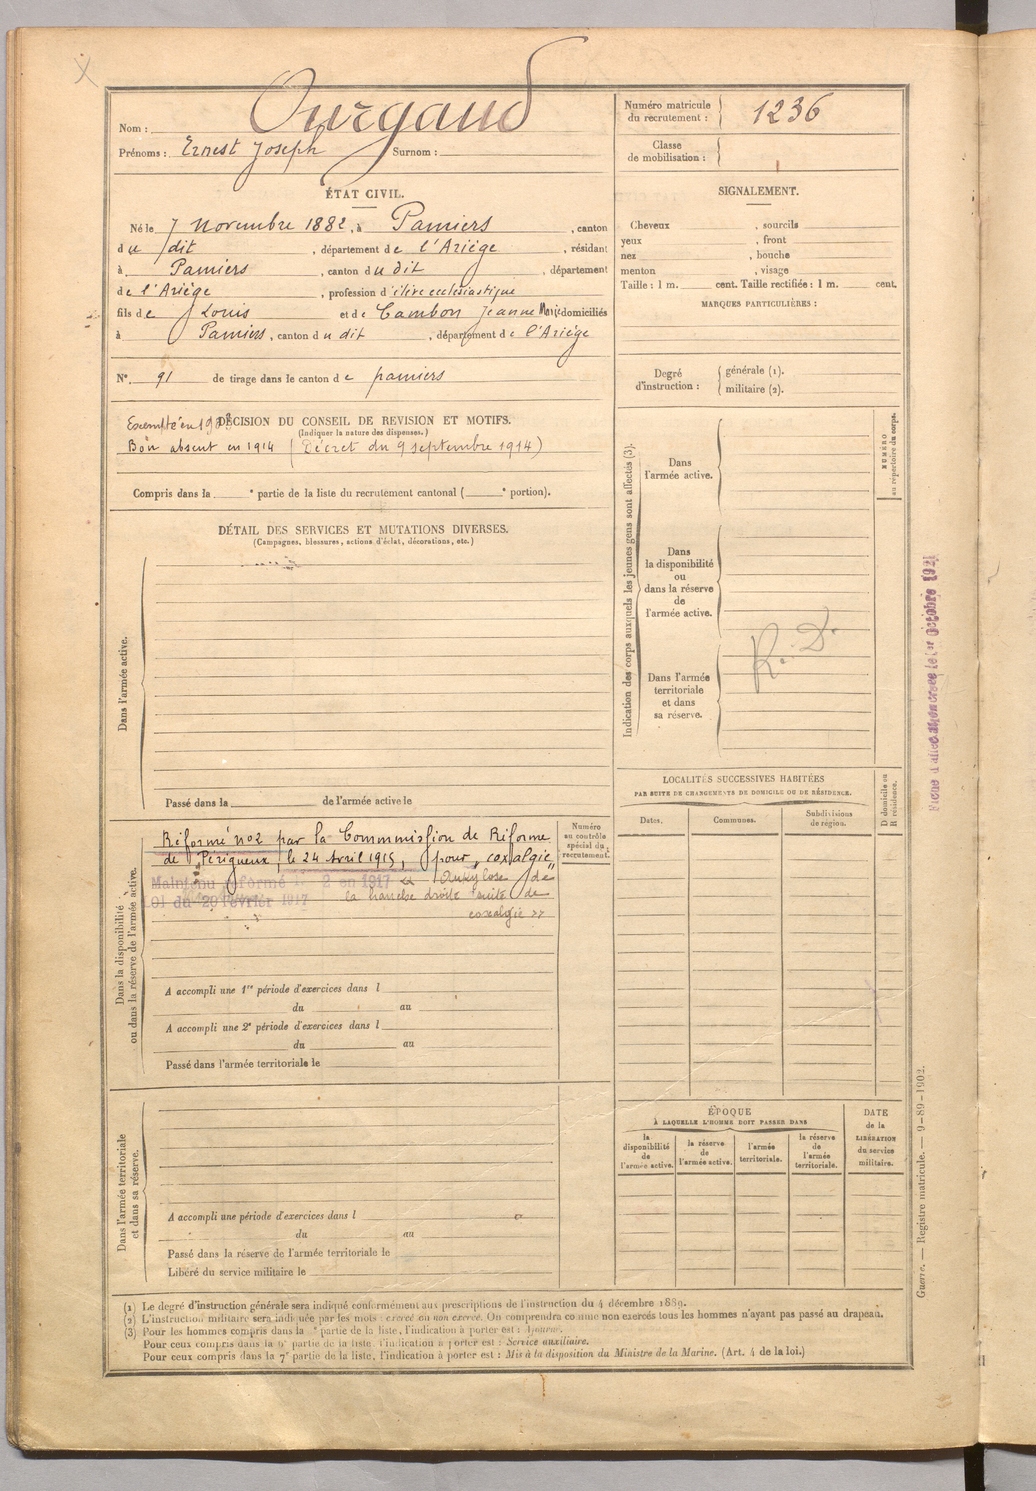 Nom : Ourgaud
Prénoms : Ernest Joseph Surnom :
Numéro matricule du recrutement : 1236
Classe de mobilisation :
ÉTAT CIVIL.
Né le 7 novembre 1882, à Pamiers, canton
du dit, département de l'Ariège, résidant
à Pamiers, canton du dit, département
de l'Ariège, profession d'élève ecclésiastique
fils de Louis et de Cambon Jeanne Marie domiciliés
à Pamiers, canton du dit, département de l'Ariège
N° 91 de tirage dans le canton de pamiers
SIGNALEMENT.
Cheveux , sourcils
yeux , front
nez , bouche
menton , visage
Taille : 1 m. cent. Taille rectifiée : 1 m. cent.
MARQUES PARTICULIÈRES :
Degré d'instruction : générale (1).
militaire (2).
Exempté en 1903
DÉCISION DU CONSEIL DE REVISION ET MOTIFS.
(Indiquer la nature des dispenses.)
Bon absent en 1914 (Décret du 9 septembre 1914)
Compris dans la e partie de la liste du recrutement cantonal ( e portion).
DÉTAIL DES SERVICES ET MUTATIONS DIVERSES.
(Campagnes, blessures, actions d'éclat, décorations, etc.)
Dans l'armée active.
Passé dans la de l'armée active le
Indication des corps auxquels les jeunes gens sont affectés (3).
NUMÉRO au répertoire du corps.
Dans
l'armée active.
Dans
la disponibilité
ou
dans la réserve
de
l'armée active.
Dans l'armée
territoriale
et dans
sa réserve.
R. D.
Dans la disponibilité
ou dans la réserve de l'armée active.
Réformé n°2 par la Commmission de Réforme
de Périgueux, le 24 Avril 1915, pour "coxalgie"
Maintenu réformé n° 2 en 1917
Loi du 20 Février 1917
Ankylose de
la hanche droite suite de
coxalgie »
Numéro
au contrôle
spécial du
recrutement.
A accompli une 1re période d'exercices dans l
du au
A accompli une 2e période d'exercices dans l
du au
Passé dans l'armée territoriale le
LOCALITÉS SUCCESSIVES HABITÉES
PAR SUITE DE CHANGEMENTS DE DOMICILE OU DE RÉSIDENCE.
Dates. Communes. Subdivisions
de région.
D domicile ou
R résidence.
Dans l'armée territoriale
et dans sa réserve.
A accompli une période d'exercices dans l
du au
Passé dans la réserve de l'armée territoriale le
Libéré du service militaire le
ÉPOQUE
À LAQUELLE L'HOMME DOIT PASSER DANS
la
disponibilité
de
l'armée active.
la réserve
de
l'armée active.
l'armée
territoriale.
la réserve
de
l'armée
territoriale.
DATE
de la
LIBÉRATION
du service
militaire.
(1) Le degré d'instruction générale sera indiqué conformément aux prescriptions de l'instruction du 4 décembre 1889.
(2) L'instruction militaire sera indiquée par les mots : exercé ou non exercé. On comprendra comme non exercés tous les hommes n'ayant pas passé au drapeau.
(3) Pour les hommes compris dans la partie de la liste, l'indication à porter est : Ajourné.
Pour ceux compris dans la partie de la liste, l'indication à porter est : Service auxiliaire.
Pour ceux compris dans la 7e partie de la liste, l'indication à porter est : Mis à la disposition du Ministre de la Marine. (Art. 4 de la loi.)
Guerre. — Registre matricule. — 9-89-1902.
le 1er Octobre 1921